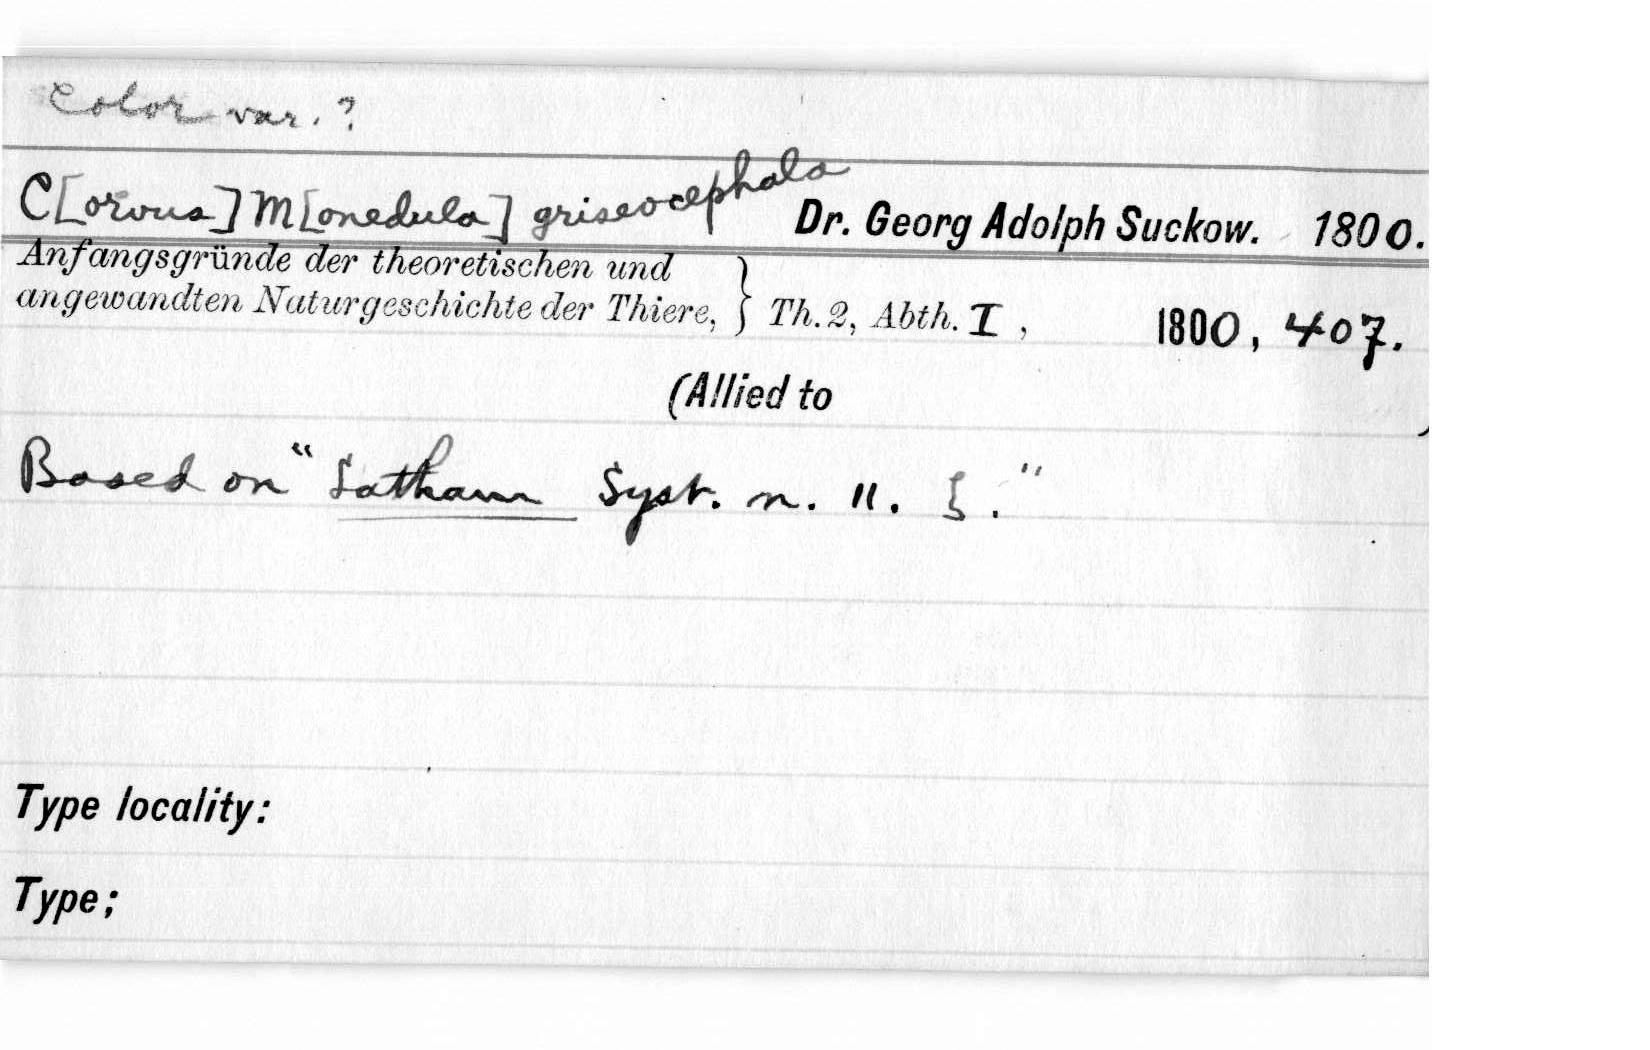 Color var. ?
C[orvus] M[onedula] griseocephala Dr. Georg Adolph Suckow. 1800.
Anfangsgründe der theoretischen und
angewandten Naturgeschichte der Thiere, } Th. 2, Abth. I, 1800, 407.
(Allied to )
Based on "Latham Syst. n. 11. ξ."
Type locality:
Type;